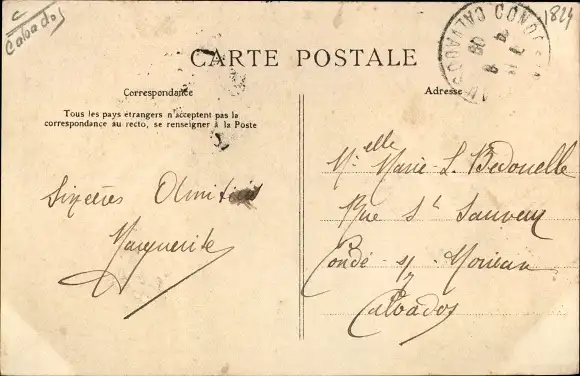 C
Calvados
1824
CARTE POSTALE
Correspondance
Adresse
Tous les pays étrangers n'acceptent pas la
correspondance au recto, se renseigner à la Poste
CALVADOS
08
Sincères
Marguerite
Melle Marie-L. Bedouelle
Rue St Sauveur
Condé s/ Noireau
Calvados